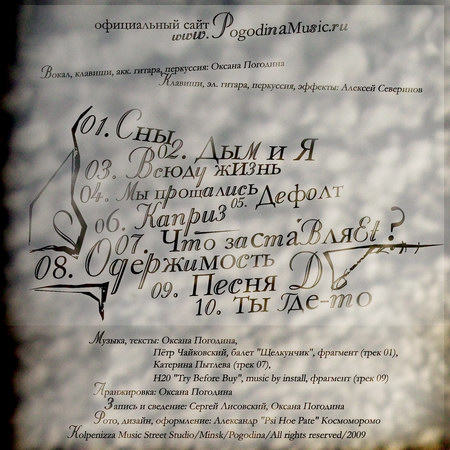 официальный сайт
www.PogodinaMusic.ru
Вокал, клавиши, акк. гитара, перкуссия: Оксана Погодина
Клавиши, эл. гитара, перкуссия, эффекты: Алексей Северинов
01. Сны
02. Дым и Я
03. Всюду жИзнь
04. Мы прощались
05. Дефолт
06. Каприз
07. Что застаВляEt ?
08. Одержимость
09. Песня D
10. Ты где-то
Музыка, тексты: Оксана Погодина,
Пётр Чайковский, балет "Щелкунчик", фрагмент (трек 01),
Катерина Пытлева (трек 07),
H2O "Try Before Buy", music by install, фрагмент (трек 09)
Аранжировка: Оксана Погодина
Запись и сведение: Сергей Лисовский, Оксана Погодина
Фото, дизайн, оформление: Александр "Psi Hoe Pate" Космоморомо
Kolpenizza Music Street Studio/Minsk/Pogodina/All rights reserved/2009